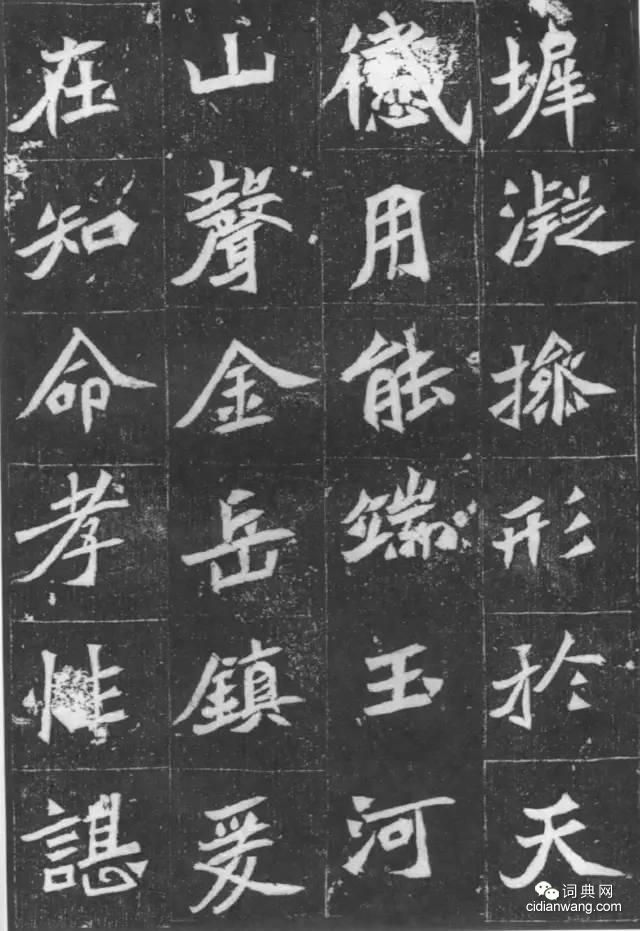 墀凝操形於天
用能端玉河
山聲金岳鎮爰
在知命孝性諶
词典网
cidianwang.com